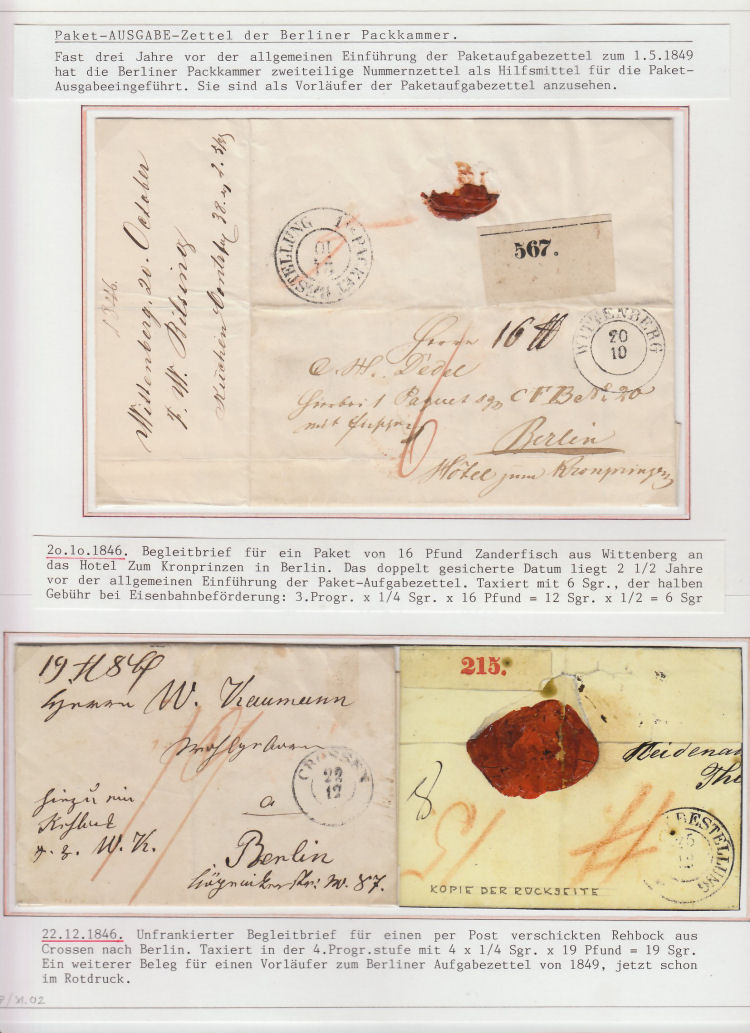 Paket-AUSGABE-Zettel der Berliner Packkammer.
Fast drei Jahre vor der allgemeinen Einführung der Paketaufgabezettel zum 1.5.1849
hat die Berliner Packkammer zweiteilige Nummernzettel als Hilfsmittel für die Paket-
Ausgabeeingeführt. Sie sind als Vorläufer der Paketaufgabezettel anzusehen.
1846
Wittenberg, 20. October
F. W. Bilsing
PACKET BESTELLUNG
567.
WITTENBERG
20
10
Herrn 16 ℔
C. H. Dedel
Hierbei 1 Paquet sgn C F B No 20
6
Berlin
Hôtel zum Kronprinzen
2o.1o.1846. Begleitbrief für ein Paket von 16 Pfund Zanderfisch aus Wittenberg an
das Hotel Zum Kronprinzen in Berlin. Das doppelt gesicherte Datum liegt 2 1/2 Jahre
vor der allgemeinen Einführung der Paket-Aufgabezettel. Taxiert mit 6 Sgr., der halben
Gebühr bei Eisenbahnbeförderung: 3.Progr. x 1/4 Sgr. x 16 Pfund = 12 Sgr. x 1/2 = 6 Sgr
Herrn W. Kaumann
Wohlgeboren
CROSSEN
22
12
a
W. K.
Berlin
No. 87.
215.
BESTELLUNG
KOPIE DER RÜCKSEITE
22.12.1846. Unfrankierter Begleitbrief für einen per Post verschickten Rehbock aus
Crossen nach Berlin. Taxiert in der 4.Progr.stufe mit 4 x 1/4 Sgr. x 19 Pfund = 19 Sgr.
Ein weiterer Beleg für einen Vorläufer zum Berliner Aufgabezettel von 1849, jetzt schon
im Rotdruck.